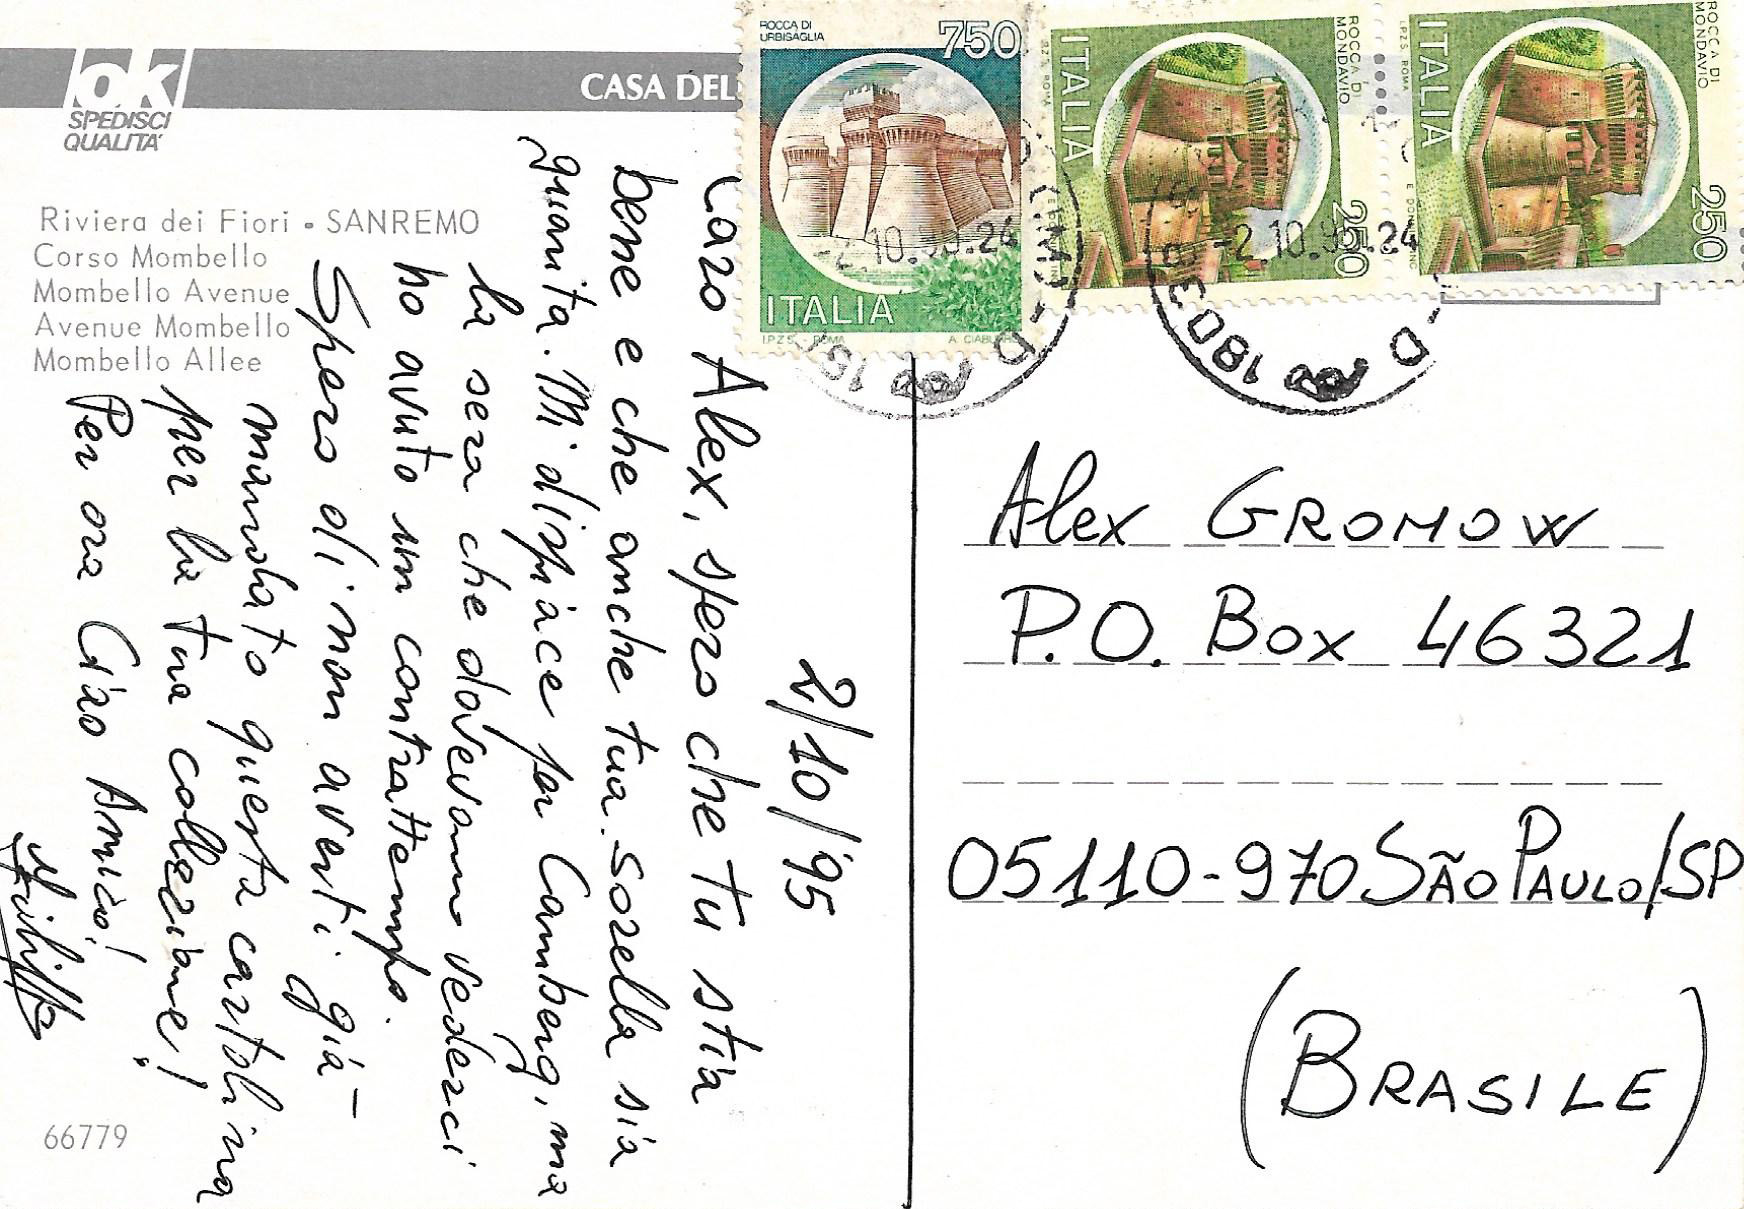 ok
SPEDISCI
QUALITA'
CASA DEL
Riviera dei Fiori - SANREMO
Corso Mombello
Mombello Avenue
Avenue Mombello
Mombello Allee
66779
2/10/'95
Caro Alex, spero che tu stia
bene e che anche tua sorella sia
guarita. Mi dispiace per Camberg, ma
la sera che dovevamo vederci
ho avuto un contrattempo.
Spero di non averti già
mandato questa cartolina
per la tua collezione!
Per ora Ciao Amico!
ROCCA DI
URBISAGLIA
750
ITALIA
I.P.Z.S. - ROMA
ROCCA DI
MONDAVIO
ITALIA
250
ROCCA DI
MONDAVIO
ITALIA
I.P.Z.S. ROMA
250
-2.10.
24
180
Alex GROMOW
P.O. Box 46321
05110-970 SÃO PAULO/SP
(BRASILE)